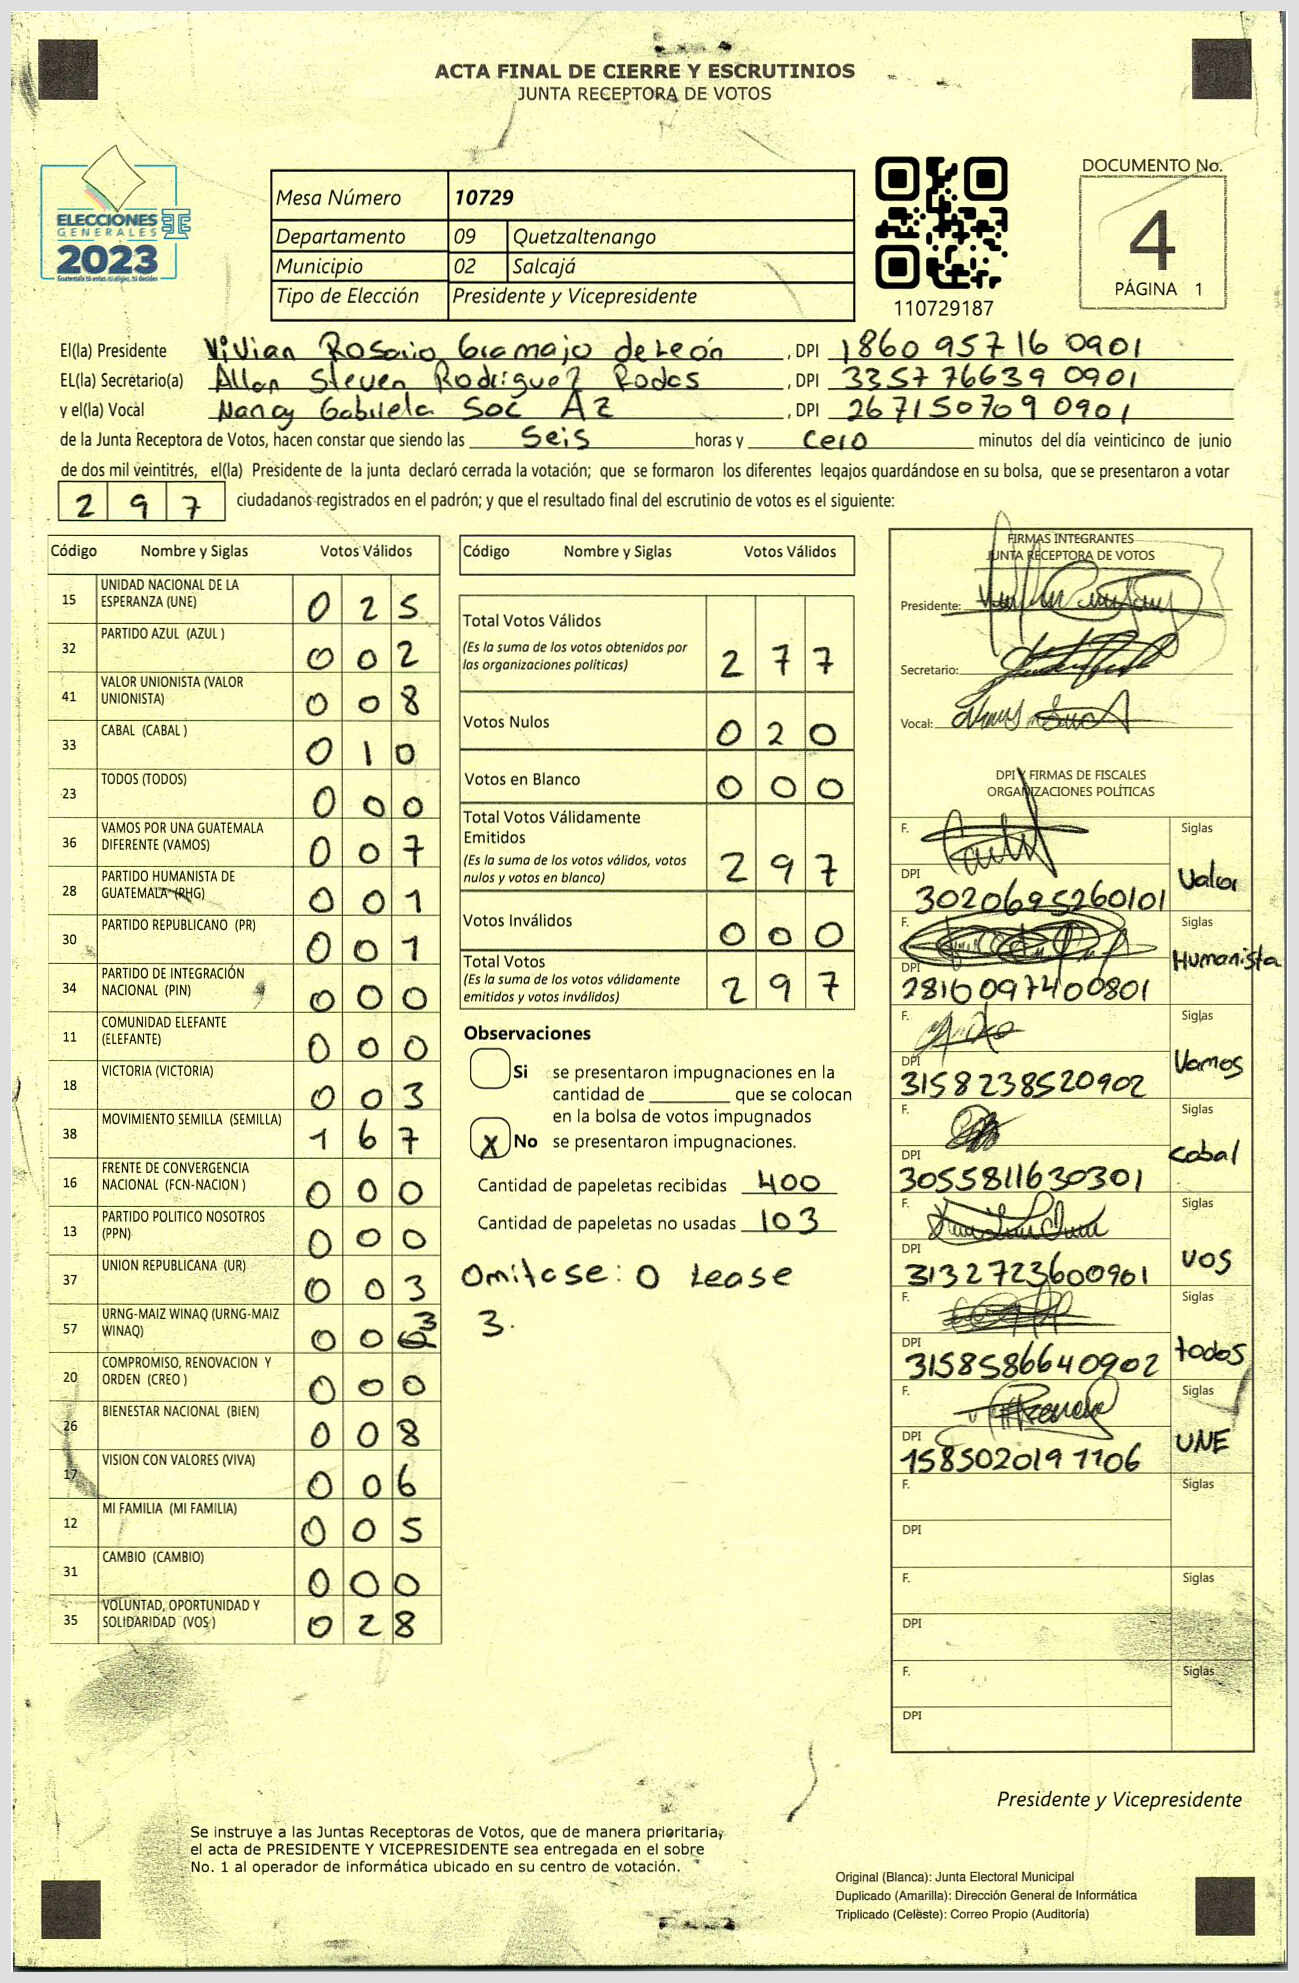 ACTA FINAL DE CIERRE Y ESCRUTINIOS
JUNTA RECEPTORA DE VOTOS
ELECCIONES
GENERALES
2023
Mesa Número 10729
Departamento 09 Quetzaltenango
Municipio 02 Salcajá
Tipo de Elección Presidente y Vicepresidente
110729187
DOCUMENTO No.
4
PÁGINA 1
El(la) Presidente Vivian Rosario Gramajo de León , DPI 1860 95716 0901
EL(la) Secretario(a) Allan Steven Rodriguez Rodas , DPI 3357 76639 0901
y el(la) Vocal Nancy Gabriela Soc Az , DPI 2671 50709 0901
de la Junta Receptora de Votos, hacen constar que siendo las Seis horas y Cero minutos del día veinticinco de junio
de dos mil veintitrés, el(la) Presidente de la junta declaró cerrada la votación; que se formaron los diferentes legajos guardándose en su bolsa, que se presentaron a votar
297 ciudadanos registrados en el padrón; y que el resultado final del escrutinio de votos es el siguiente:
Código Nombre y Siglas Votos Válidos
15 UNIDAD NACIONAL DE LA
ESPERANZA (UNE) 025
32 PARTIDO AZUL (AZUL ) 002
41 VALOR UNIONISTA (VALOR
UNIONISTA) 008
33 CABAL (CABAL ) 010
23 TODOS (TODOS) 000
36 VAMOS POR UNA GUATEMALA
DIFERENTE (VAMOS) 007
28 PARTIDO HUMANISTA DE
GUATEMALA (PHG) 001
30 PARTIDO REPUBLICANO (PR) 001
34 PARTIDO DE INTEGRACIÓN
NACIONAL (PIN) 000
11 COMUNIDAD ELEFANTE
(ELEFANTE) 000
18 VICTORIA (VICTORIA) 003
38 MOVIMIENTO SEMILLA (SEMILLA) 167
16 FRENTE DE CONVERGENCIA
NACIONAL (FCN-NACION ) 000
13 PARTIDO POLITICO NOSOTROS
(PPN) 000
37 UNION REPUBLICANA (UR) 003
57 URNG-MAIZ WINAQ (URNG-MAIZ
WINAQ) 003
20 COMPROMISO, RENOVACION Y
ORDEN (CREO ) 000
26 BIENESTAR NACIONAL (BIEN) 008
17 VISION CON VALORES (VIVA) 006
12 MI FAMILIA (MI FAMILIA) 005
31 CAMBIO (CAMBIO) 000
35 VOLUNTAD, OPORTUNIDAD Y
SOLIDARIDAD (VOS ) 028
Código Nombre y Siglas Votos Válidos
Total Votos Válidos
(Es la suma de los votos obtenidos por
las organizaciones políticas) 277
Votos Nulos 020
Votos en Blanco 000
Total Votos Válidamente
Emitidos
(Es la suma de los votos válidos, votos
nulos y votos en blanco) 297
Votos Inválidos 000
Total Votos
(Es la suma de los votos válidamente
emitidos y votos inválidos) 297
Observaciones
Si se presentaron impugnaciones en la
cantidad de ________ que se colocan
en la bolsa de votos impugnados
X No se presentaron impugnaciones.
Cantidad de papeletas recibidas 400
Cantidad de papeletas no usadas 103
Omitase: 0 Lease
3.
FIRMAS INTEGRANTES
JUNTA RECEPTORA DE VOTOS
Presidente:
Secretario:
Vocal:
DPI Y FIRMAS DE FISCALES
ORGANIZACIONES POLÍTICAS
F. Siglas
DPI 3020695260101 Valor
F. Siglas
DPI 2816097400801 Humanista
F. Siglas
DPI 3158238520902 Vamos
F. Siglas
DPI 3055811630301 cabal
F. Siglas
DPI 3132723600901 VOS
F. Siglas
DPI 3158586640902 todos
F. Siglas
DPI 1585020191106 UNE
F. Siglas
DPI
F. Siglas
DPI
F. Siglas
DPI
Presidente y Vicepresidente
Se instruye a las Juntas Receptoras de Votos, que de manera prioritaria,
el acta de PRESIDENTE Y VICEPRESIDENTE sea entregada en el sobre
No. 1 al operador de informática ubicado en su centro de votación.
Original (Blanca): Junta Electoral Municipal
Duplicado (Amarilla): Dirección General de Informática
Triplicado (Celeste): Correo Propio (Auditoría)